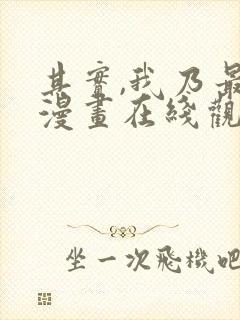 其實,我乃最
漫畫在綫觀
坐一次飛機吧